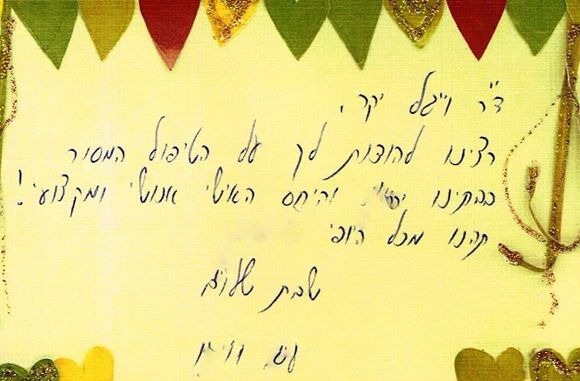 ד"ר וייגל יקר,
רצינו להודות לך על הטיפול המסור
בבתינו והיחס האישי אנושי ומקצועי!
תהנו מכל היופי
שבת שלום